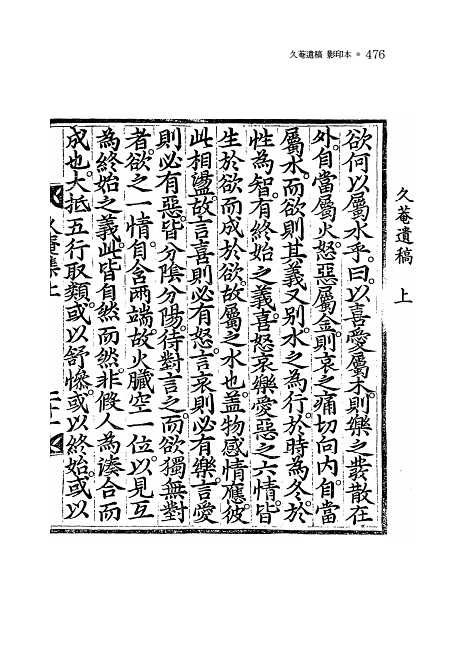 久菴遺稿 影印本 • 476
久菴遺稿 上
欲何以屬水乎。曰。以喜愛屬木。則樂之發散在
外。自當屬火。怒惡屬金。則哀之痛切向内。自當
屬水。而欲則其義又别。水之為行。於時為冬。於
性為智。有終始之義。喜怒哀樂愛惡之六情。皆
生於欲而成於欲。故屬之水也。盖物感情應。彼
此相盪。故言喜則必有怒。言哀則必有樂。言愛
則必有惡。皆分陰分陽。待對言之。而欲獨無對
者。欲之一情。自含兩端。故火臟空一位。以見互
為終始之義。此皆自然而然。非假人為湊合而
成也。大抵五行取類。或以舒慘。或以終始。或以